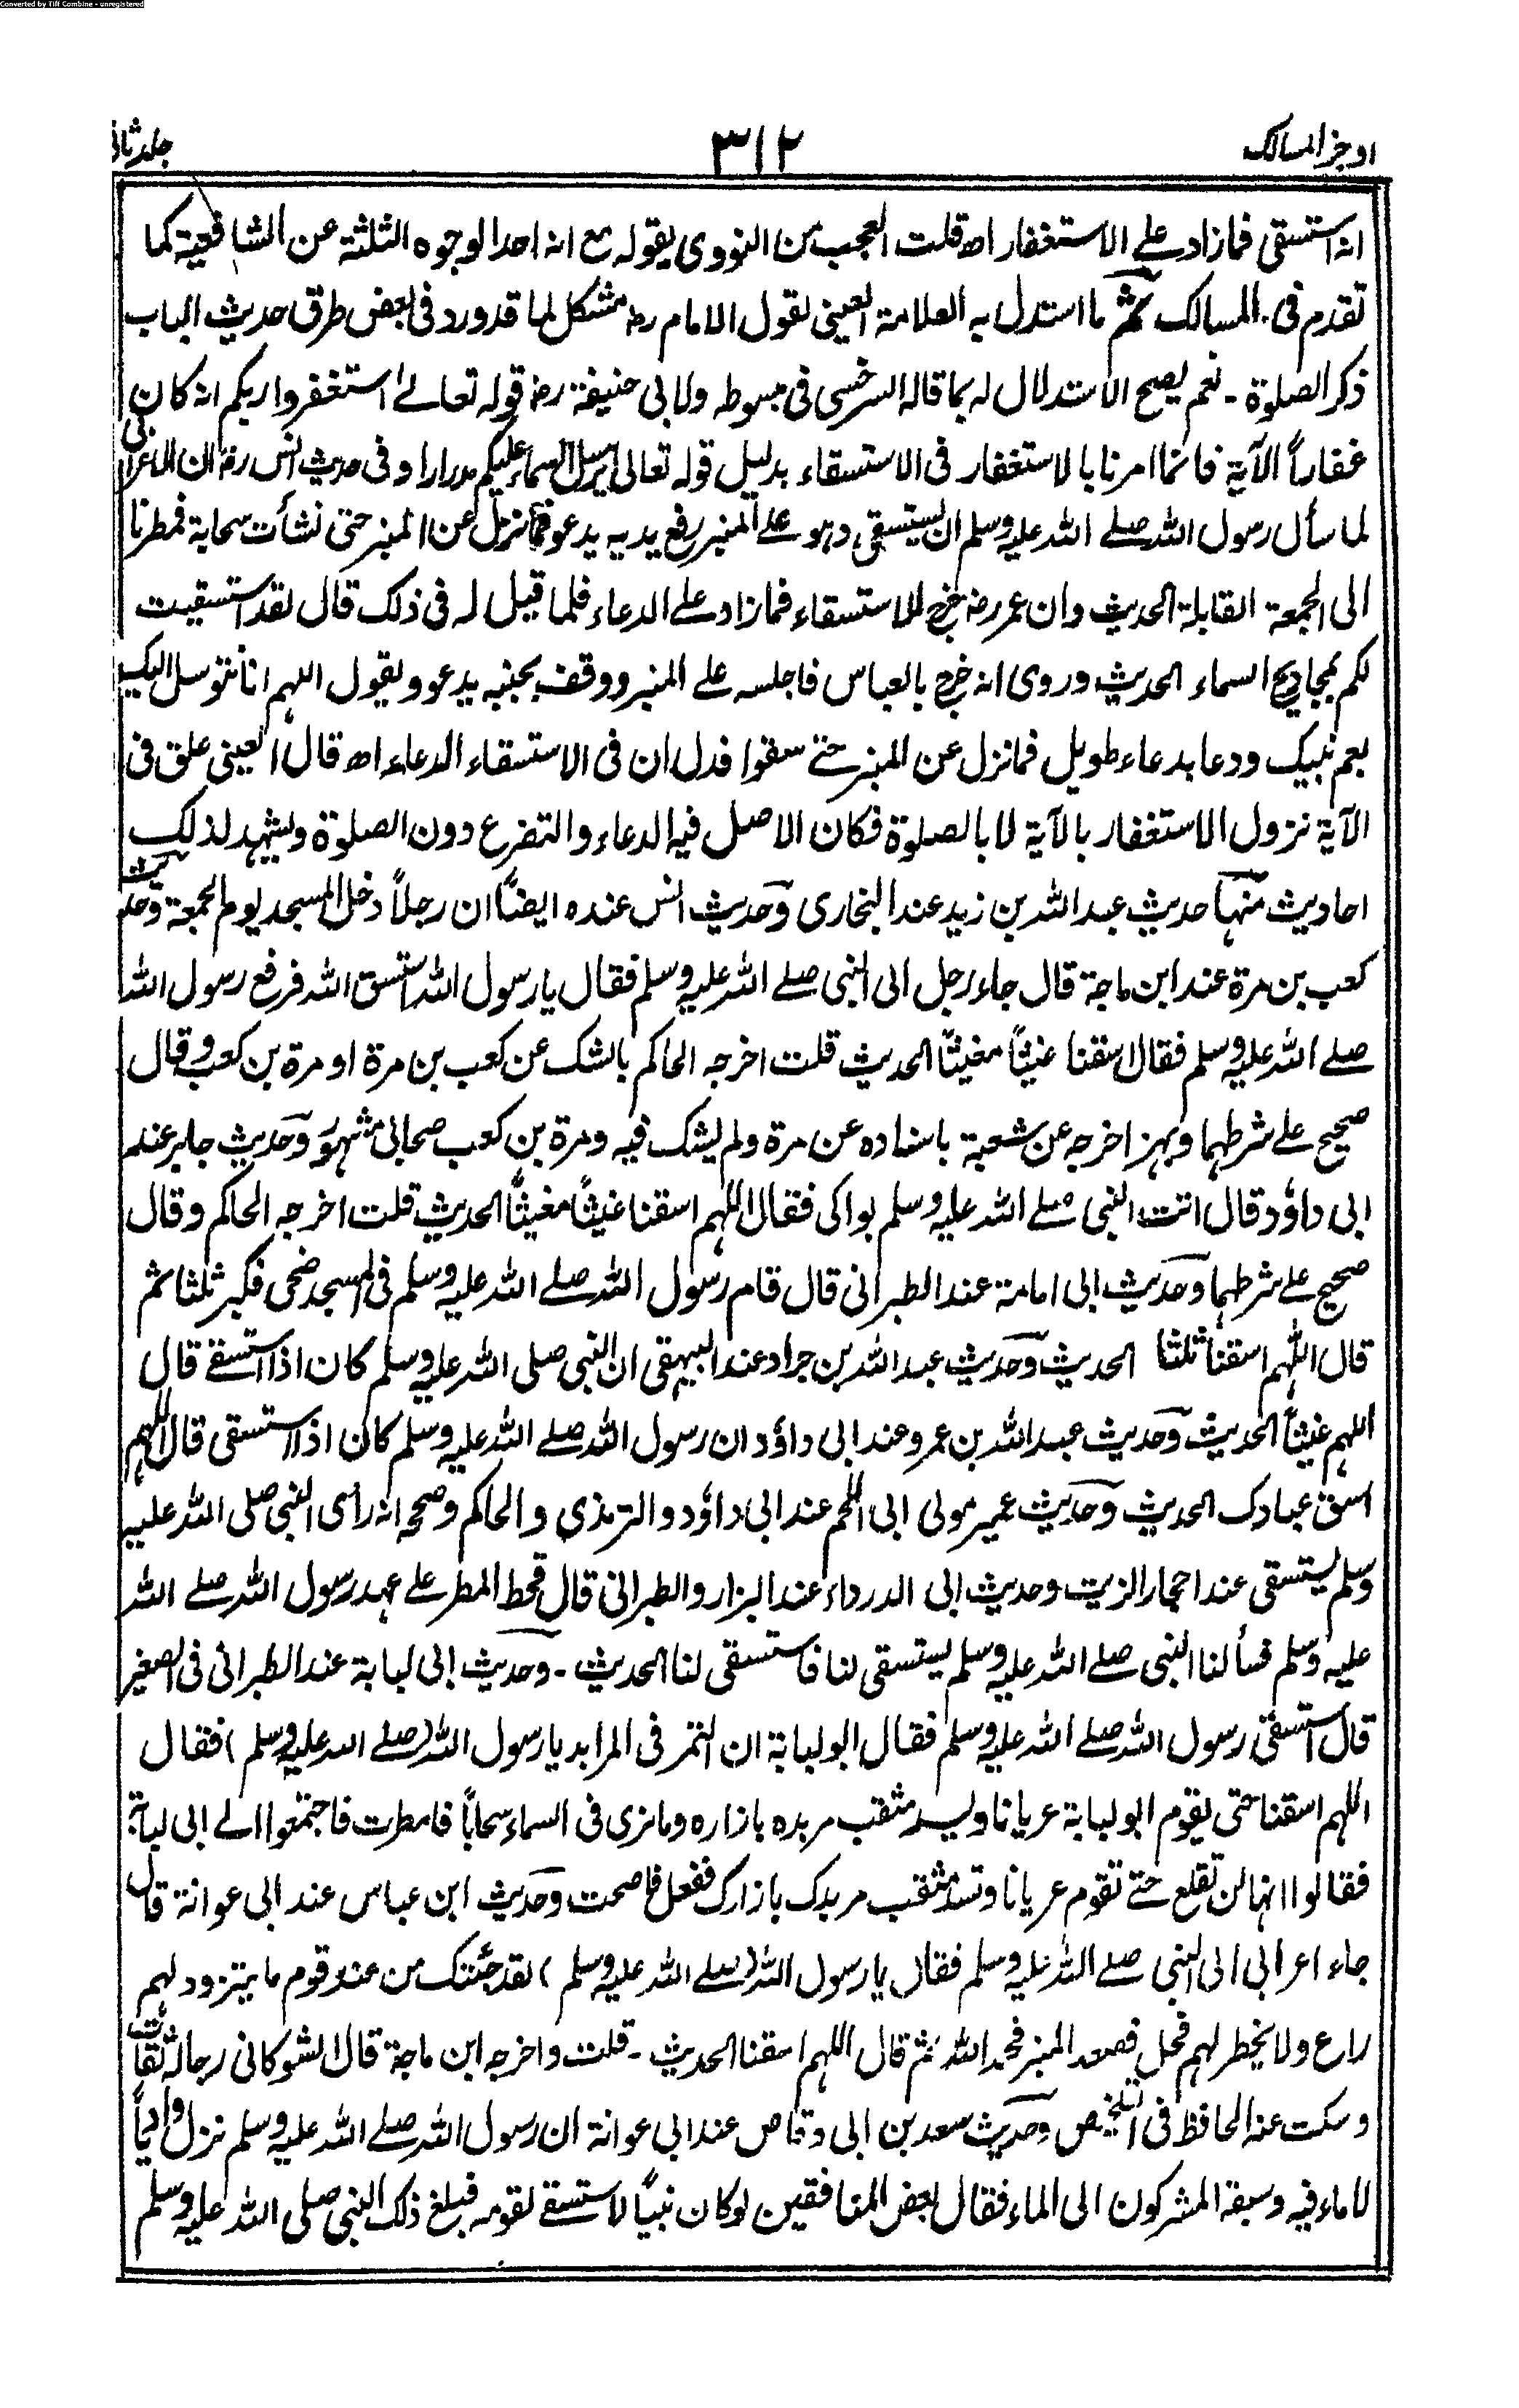 Converted by Tiff Combine - unregistered
اوجز المسالك ٣١٢ جلد ثانی
انه استسقى فمازاد على الاستغفار اه قلت العجب من النووى يقوله مع انه احد الوجوه الثلثة عن الشافعية كما
تقدم فى المسالك ثم ما استدل به العلامة العينى لقول الامام رح مشكل لما قد ورد فى بعض طرق حديث الباب
ذكر الصلوة - نعم يصح الاستدلال له بما قاله السرخسى فى مبسوطه ولابى حنيفة رح قوله تعالى استغفروا ربكم انه كان
غفاراً الآية فانما امرنا بالاستغفار فى الاستسقاء بدليل قوله تعالى يرسل السماء عليكم مدرارا وفى حديث انس رض ان الاعرابى
لما سأل رسول الله صلے الله عليه وسلم ان يستسقى وهو على المنبر رفع يديه يدعو فما نزل عن المنبر حتى نشأت سحابة فمطرنا
الى الجمعة القابلة الحديث وان عمر رض خرج للاستسقاء فمازاد على الدعاء فلما قيل له فى ذلك قال لقد استسقيت
لكم بمجاديح السماء الحديث وروى انه خرج بالعباس فاجلسه على المنبر ووقف بجنبه يدعو ويقول اللهم انا نتوسل اليك
بعم نبيك ودعا بدعاء طويل فما نزل عن المنبر حتے سقوا فدل ان فى الاستسقاء الدعاء اه قال العينى علق فى
الآية نزول الاستغفار بالآية لا بالصلوة فكان الاصل فيه الدعاء والتضرع دون الصلوة ويشهد لذلك
احاديث منها حديث عبد الله بن زيد عند البخارى وحديث انس عنده ايضاً ان رجلاً دخل المسجد يوم الجمعة وحديث
كعب بن مرة عند ابن ماجة قال جاء رجل الى النبى صلے الله عليه وسلم فقال يا رسول الله استسق الله فرفع رسول الله
صلے الله عليه وسلم فقال اسقنا غيثاً مغيثاً الحديث قلت اخرجه الحاكم بالشك عن كعب بن مرة او مرة بن كعب وقال
صحيح على شرطهما وبهز اخرجه عن شعبة باسناده عن مرة ولم يشك فيه ومرة بن كعب صحابى مشهور وحديث جابر عند
ابى داؤد قال اتت النبى صلے الله عليه وسلم بواكى فقال اللهم اسقنا غيثاً مغيثاً الحديث قلت اخرجه الحاكم وقال
صحيح على شرطهما وحديث ابى امامة عند الطبرانى قال قام رسول الله صلے الله عليه وسلم فى المسجد ضحى فكبر ثلثا ثم
قال اللهم اسقنا ثلثا الحديث وحديث عبد الله بن جراد عند البيهقى ان النبى صلى الله عليه وسلم كان اذا استسقے قال
اللهم غيثاً الحديث وحديث عبد الله بن عمرو عند ابى داؤد ان رسول الله صلے الله عليه وسلم كان اذا استسقى قال اللهم
اسق عبادك الحديث وحديث عمير مولى ابى اللحم عند ابى داؤد والترمذى والحاكم وصححه انه رأى النبى صلى الله عليه
وسلم يستسقى عند احجار الزيت وحديث ابى الدرداء عند البزار والطبرانى قال قحط المطر على عهد رسول الله صلے الله
عليه وسلم فسألنا النبى صلے الله عليه وسلم يستسقى لنا فاستسقى لنا الحديث - وحديث ابى لبابة عند الطبرانى فى الصغير
قال استسقى رسول الله صلے الله عليه وسلم فقال ابو لبابة ان التمر فى المرابد يا رسول الله (صلے الله عليه وسلم) فقال
اللهم اسقنا حتى يقوم ابو لبابة عريانا ويسد مثقب مربده بازاره وما نرى فى السماء سحاباً فامطرت فاجتمعوا الے ابى لبابة
فقالوا انها لن تقلع حتے تقوم عريانا وتسد مثقب مربدك بازارك ففعل فاصحت وحديث ابن عباس عند ابى عوانة قال
جاء اعرابى الى النبى صلے الله عليه وسلم فقال يا رسول الله (صلے الله عليه وسلم) لقد جئتك من عند قوم ما يتزود لهم
راع ولا يخطر لهم فحل فصعد المنبر فحمد الله ثم قال اللهم اسقنا الحديث - قلت واخرجه ابن ماجة قال الشوكانى رجاله ثقات
وسكت عنه الحافظ فى التلخيص وحديث سعد بن ابى وقاص عند ابى عوانة ان رسول الله صلے الله عليه وسلم نزل وادياً
لا ماء فيه وسبقه المشركون الى الماء فقال بعض المنافقين لو كان نبياً لاستسقے لقومه فبلغ ذلك النبى صلى الله عليه وسلم